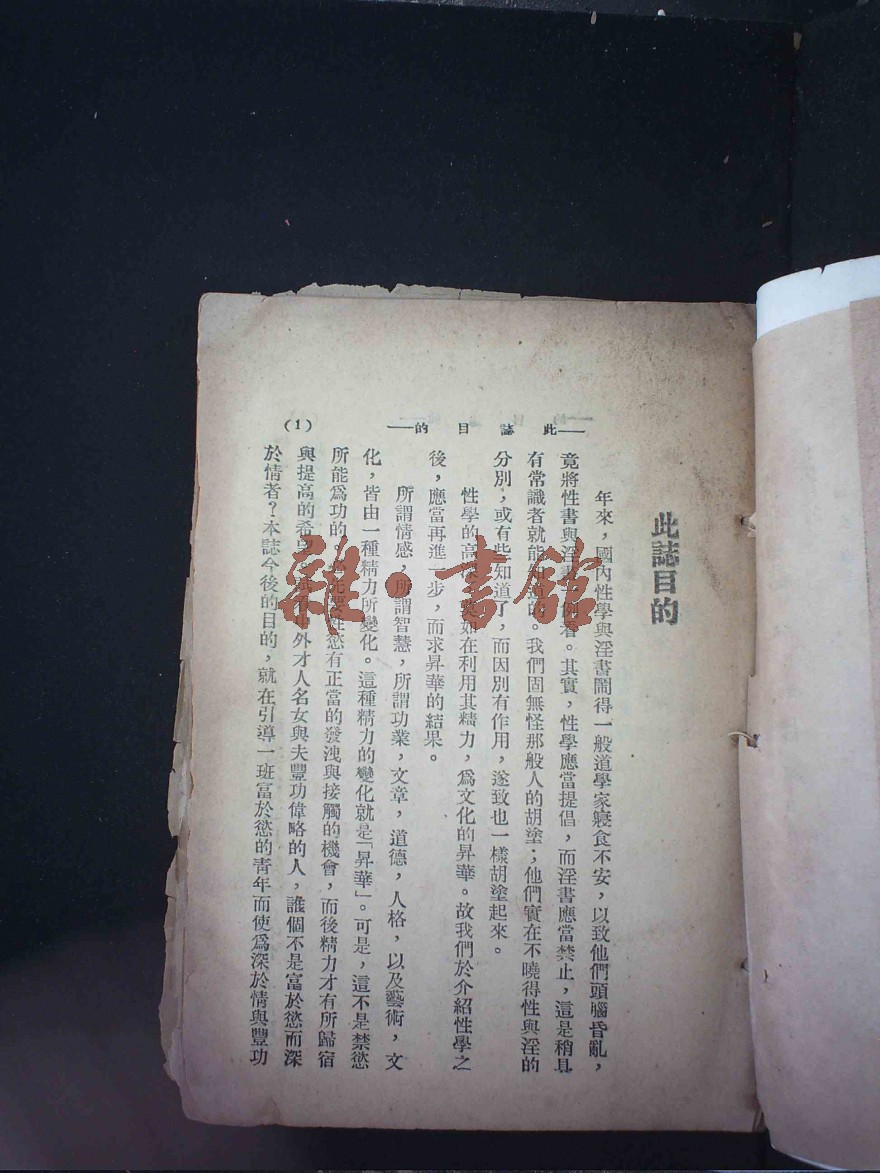 此誌目的
年來，國內性學與淫書鬧得一般道學家寢食不安，以致他們頭腦昏亂，
竟將性書與淫書一例看。其實，性學應當提倡，而淫書應當禁止，這是稍具
有常識者就能知道的。我們固無怪那般人的胡塗；他們實在不曉得性與淫的
分別，或有些知道了，而因別有作用，遂致也一樣胡塗起來。
性學的高深，更如在利用其精力，爲文化的昇華。故我們於介紹性學之
後，應當再進一步，而求昇華的結果。
所謂情感，所謂智慧，所謂功業，文章，道德，人格，以及藝術，文
化，皆由一種精力所變化。這種精力的變化就是「昇華」。可是，這不是禁慾
所能爲功的。先要性慾有正當的發洩與接觸的機會，而後精力才有所歸宿
與提高的希望。外才人名女與夫豐功偉略的人，誰個不是富於慾而深
於情者？本誌今後的目的，就在引導一班富於慾的青年而使爲深於情與豐功
——此誌目的——
(1)
雜·書館